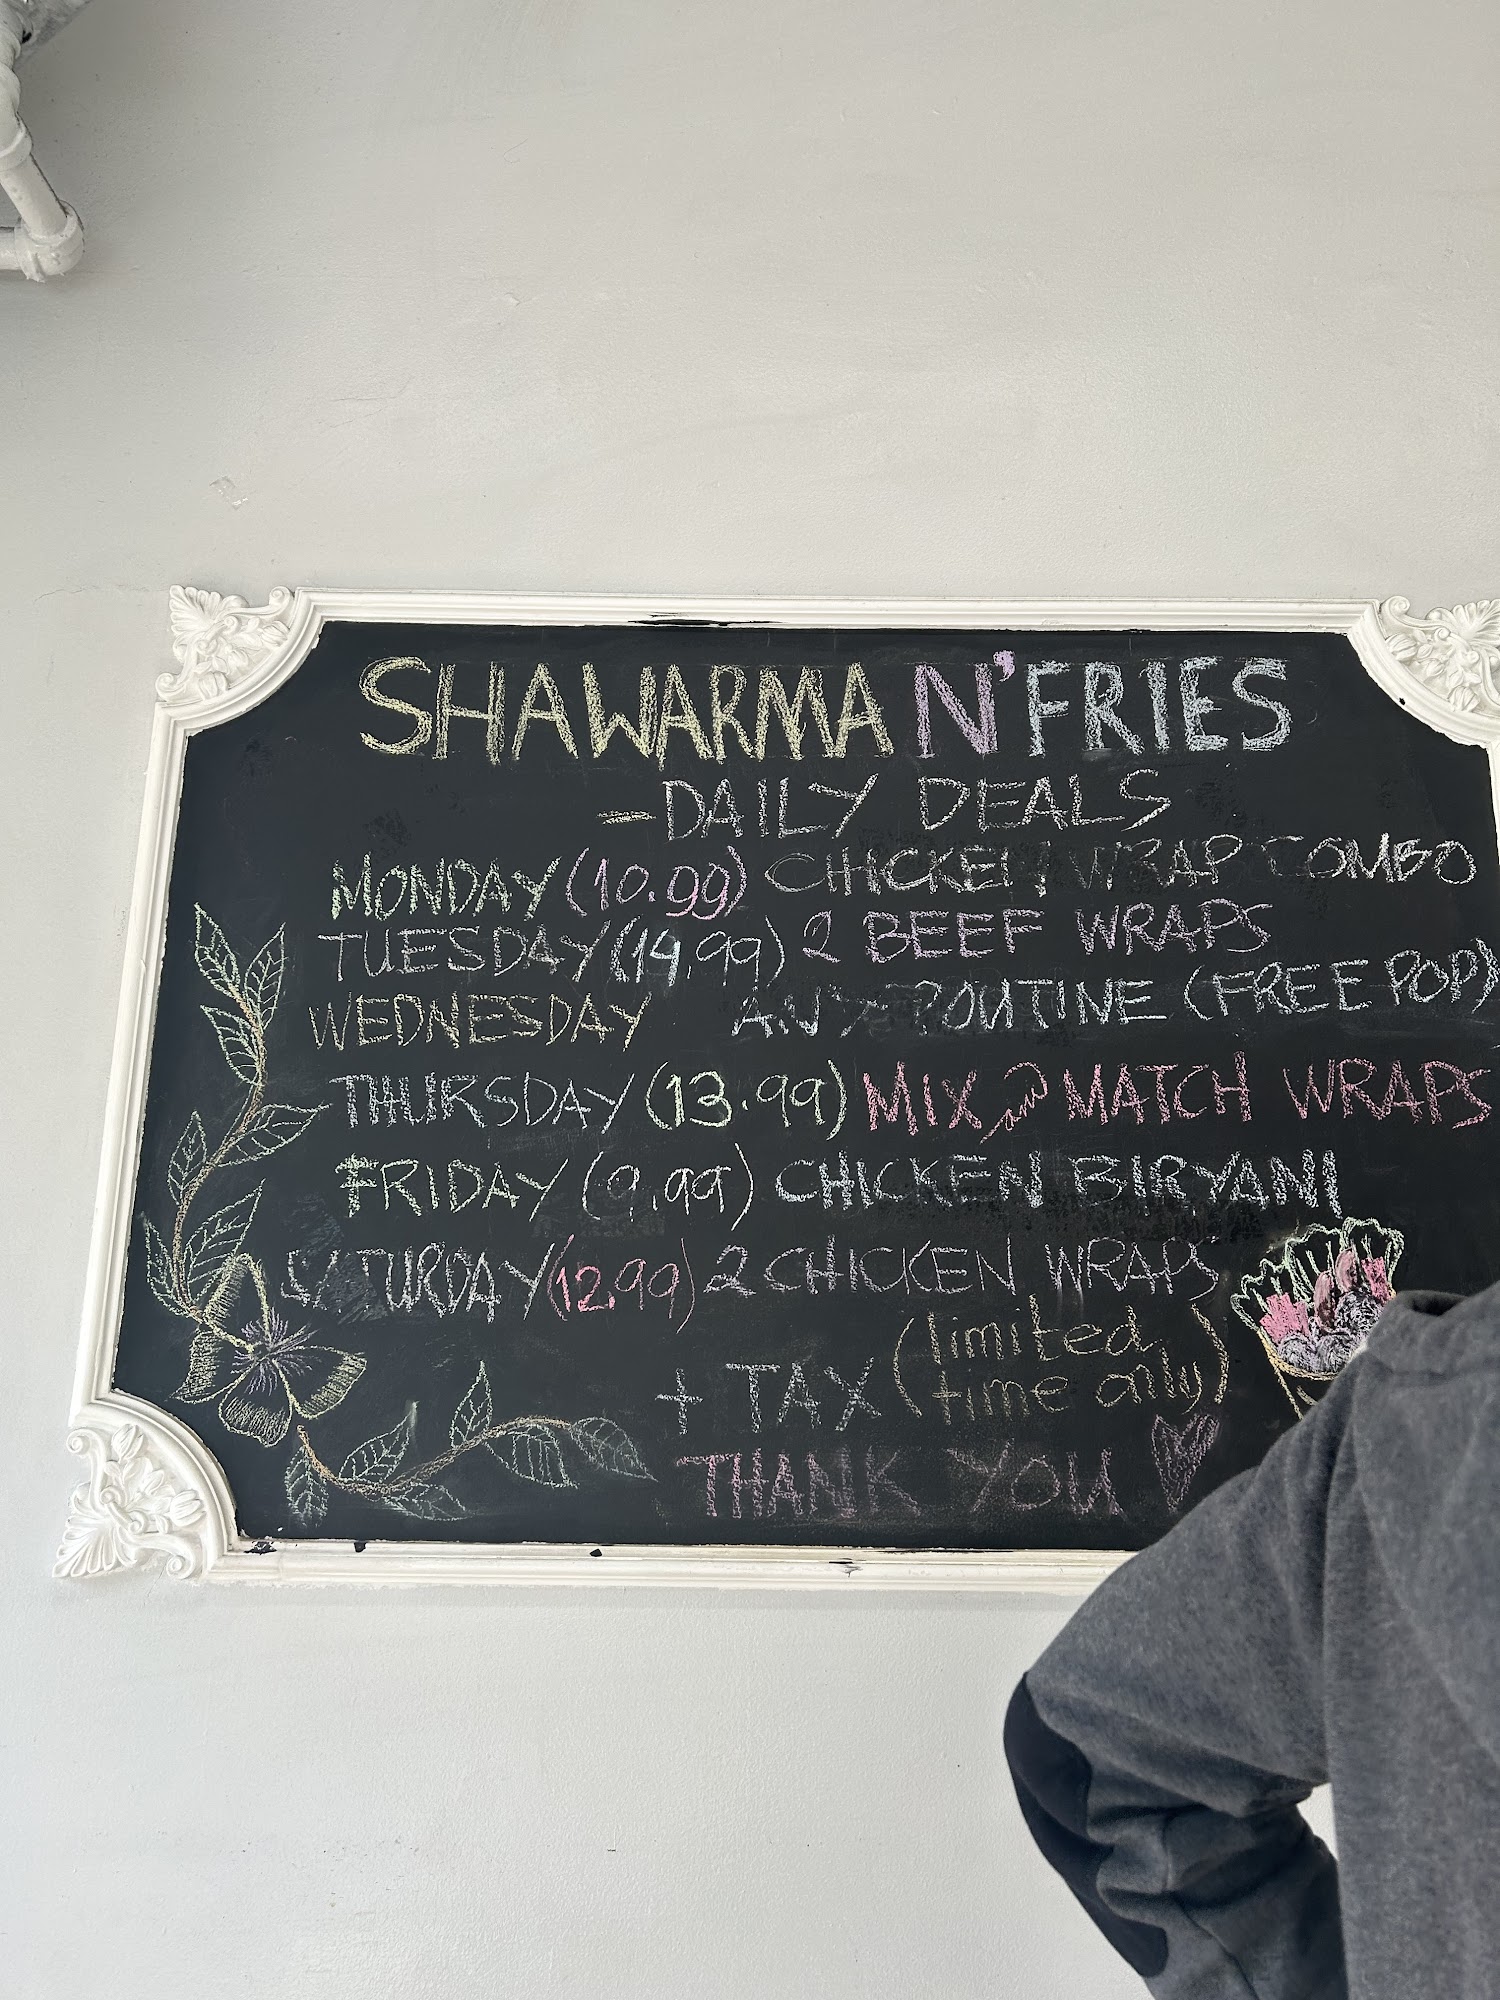 SHAWARMA N'FRIES
- DAILY DEALS
MONDAY (10.99) CHICKEN WRAP COMBO
TUESDAY (14.99) 2 BEEF WRAPS
WEDNESDAY ANY POUTINE (FREE POP)
THURSDAY (13.99) MIX and MATCH WRAPS
FRIDAY (9.99) CHICKEN BIRYANI
SATURDAY (12.99) 2 CHICKEN WRAPS
+ TAX (limited
time only)
THANK YOU